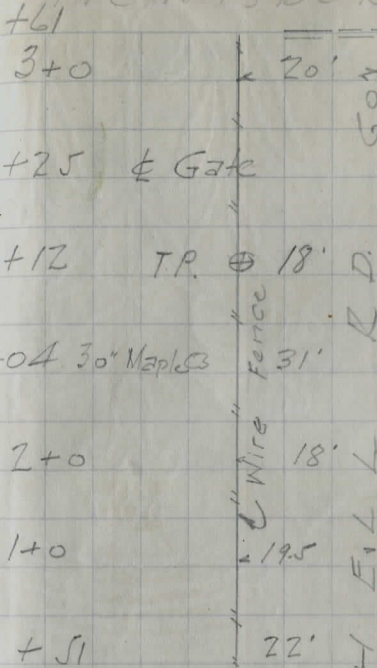 +61
3+0 20'
+25 ⅊ Gate
+12 T.P. ⊕ 18'
04 30" Maples 31'
2+0 18'
1+0 19.5
+51 22'
Wire Fence
H E L L R D.